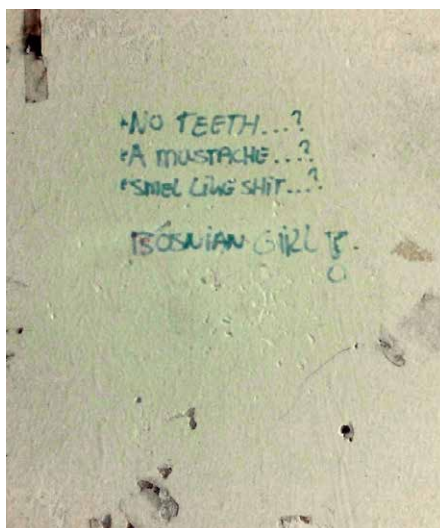 •NO TEETH...?
•A MUSTACHE...?
•SMEL LIKE SHIT...?
BOSNIAN GIRL!